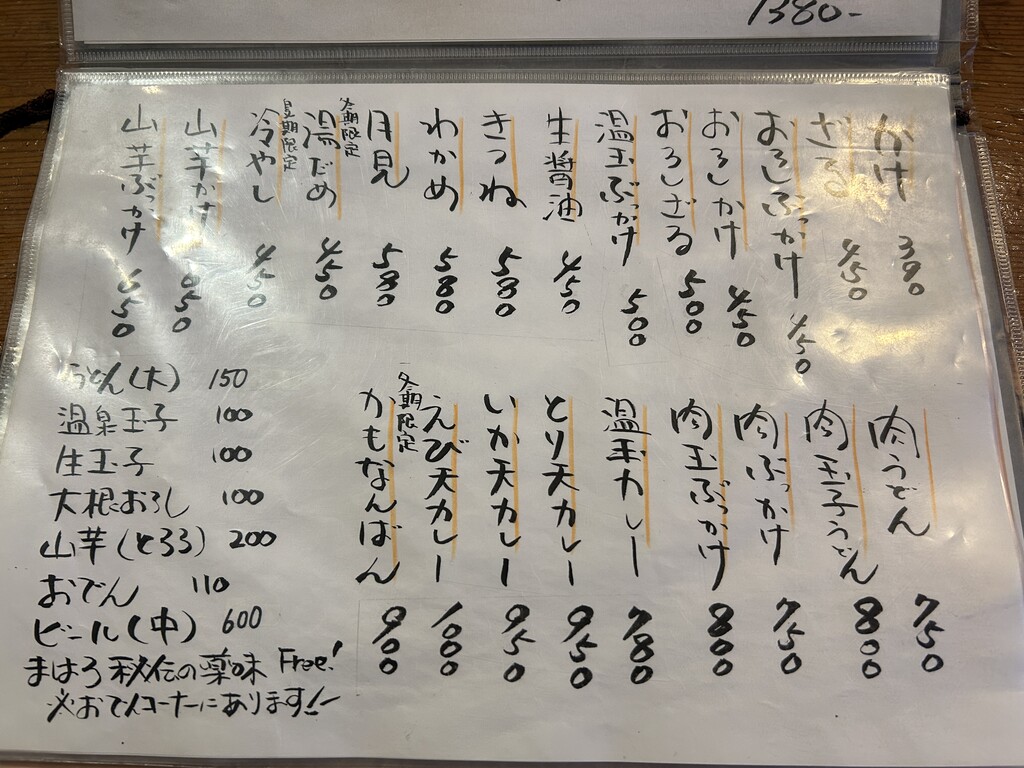 1380-
かけ 390
ざる 450
おろしぶっかけ 450
おろしかけ 450
おろしざる 500
温玉ぶっかけ 500
生醤油 450
きつね 580
わかめ 580
月見 580
冬期限定
湯だめ 450
夏期限定
冷やし 450
山芋かけ 650
山芋ぶっかけ 650
肉うどん 750
肉玉子うどん 800
肉ぶっかけ 750
肉玉ぶっかけ 800
温玉カレー 780
とり天カレー 950
いか天カレー 950
えび天カレー 1000
冬期限定
かもなんばん 900
うどん(大) 150
温泉玉子 100
生玉子 100
大根おろし 100
山芋(とろろ) 200
おでん 110
ビール(中) 600
まはろ秘伝の薬味 Free!
※おでんコーナーにあります!!